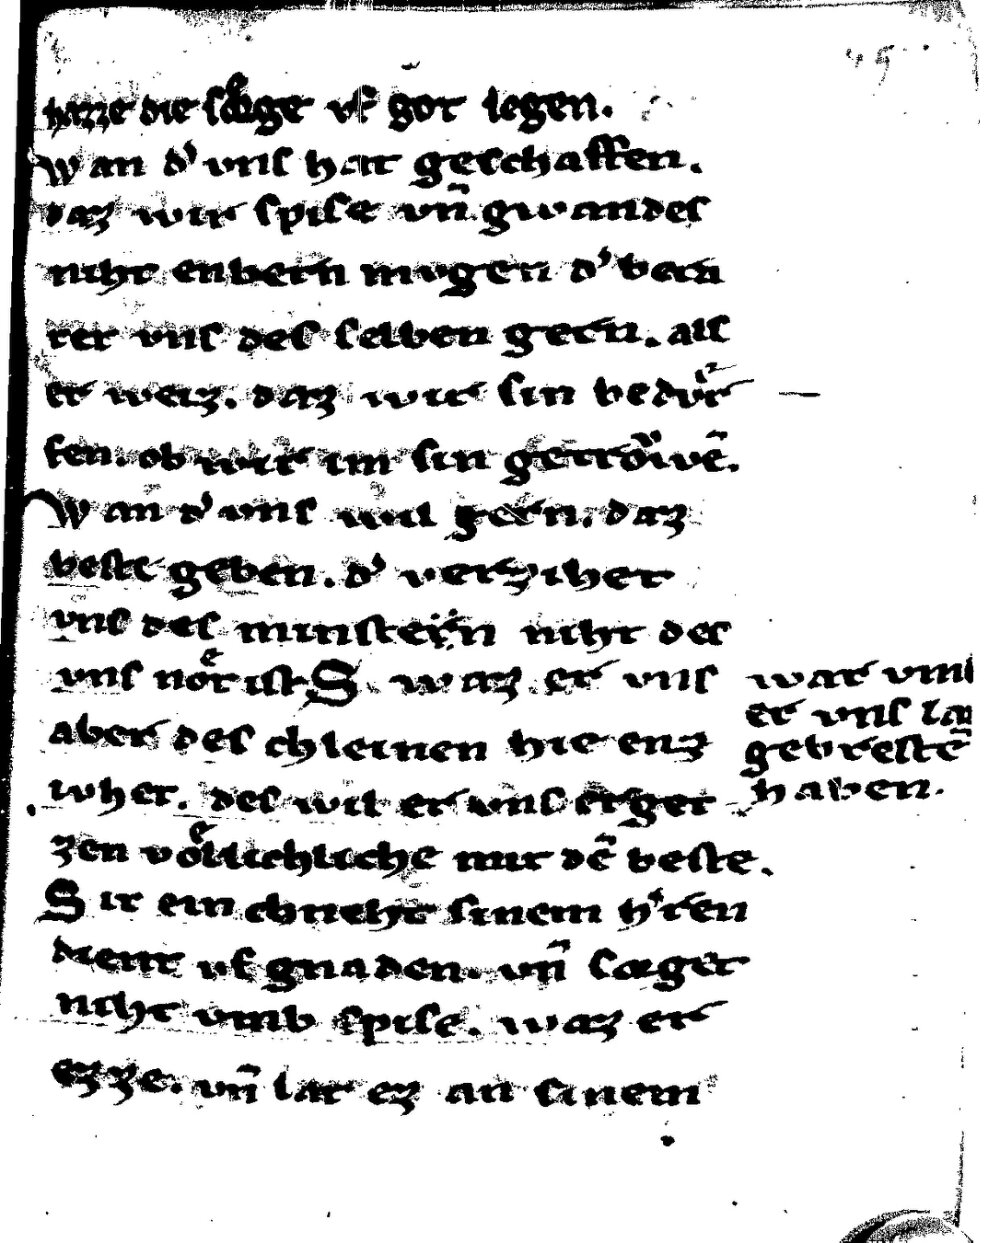 49
hazze die soͤrge vf got legen.
Wan d' vns hat geschaffen.
daz wir spise vn̄ gwandes
niht enbern mvgen d' bern
tet vns des selben gern. als
er weiz. daz wir sin bedvͤr
fen. ob wir im sin getroͮwē.
Wan d' vns wil gern. daz
beste geben. d' verzihet
vns des minstern niht des
vns noͤt ist. Swaz er vns
aber des chleinen hie enz
iuhet. des wil er vns erget
zen voͤllichliche mit dē beste.
Sit ein chneht sinem h'ren
dient vf gnaden. vn̄ sorget
niht vmb spise. waz er
ezze. vn̄ lat ez an sinem
war vmb
er vns la
gebrestē
haben.